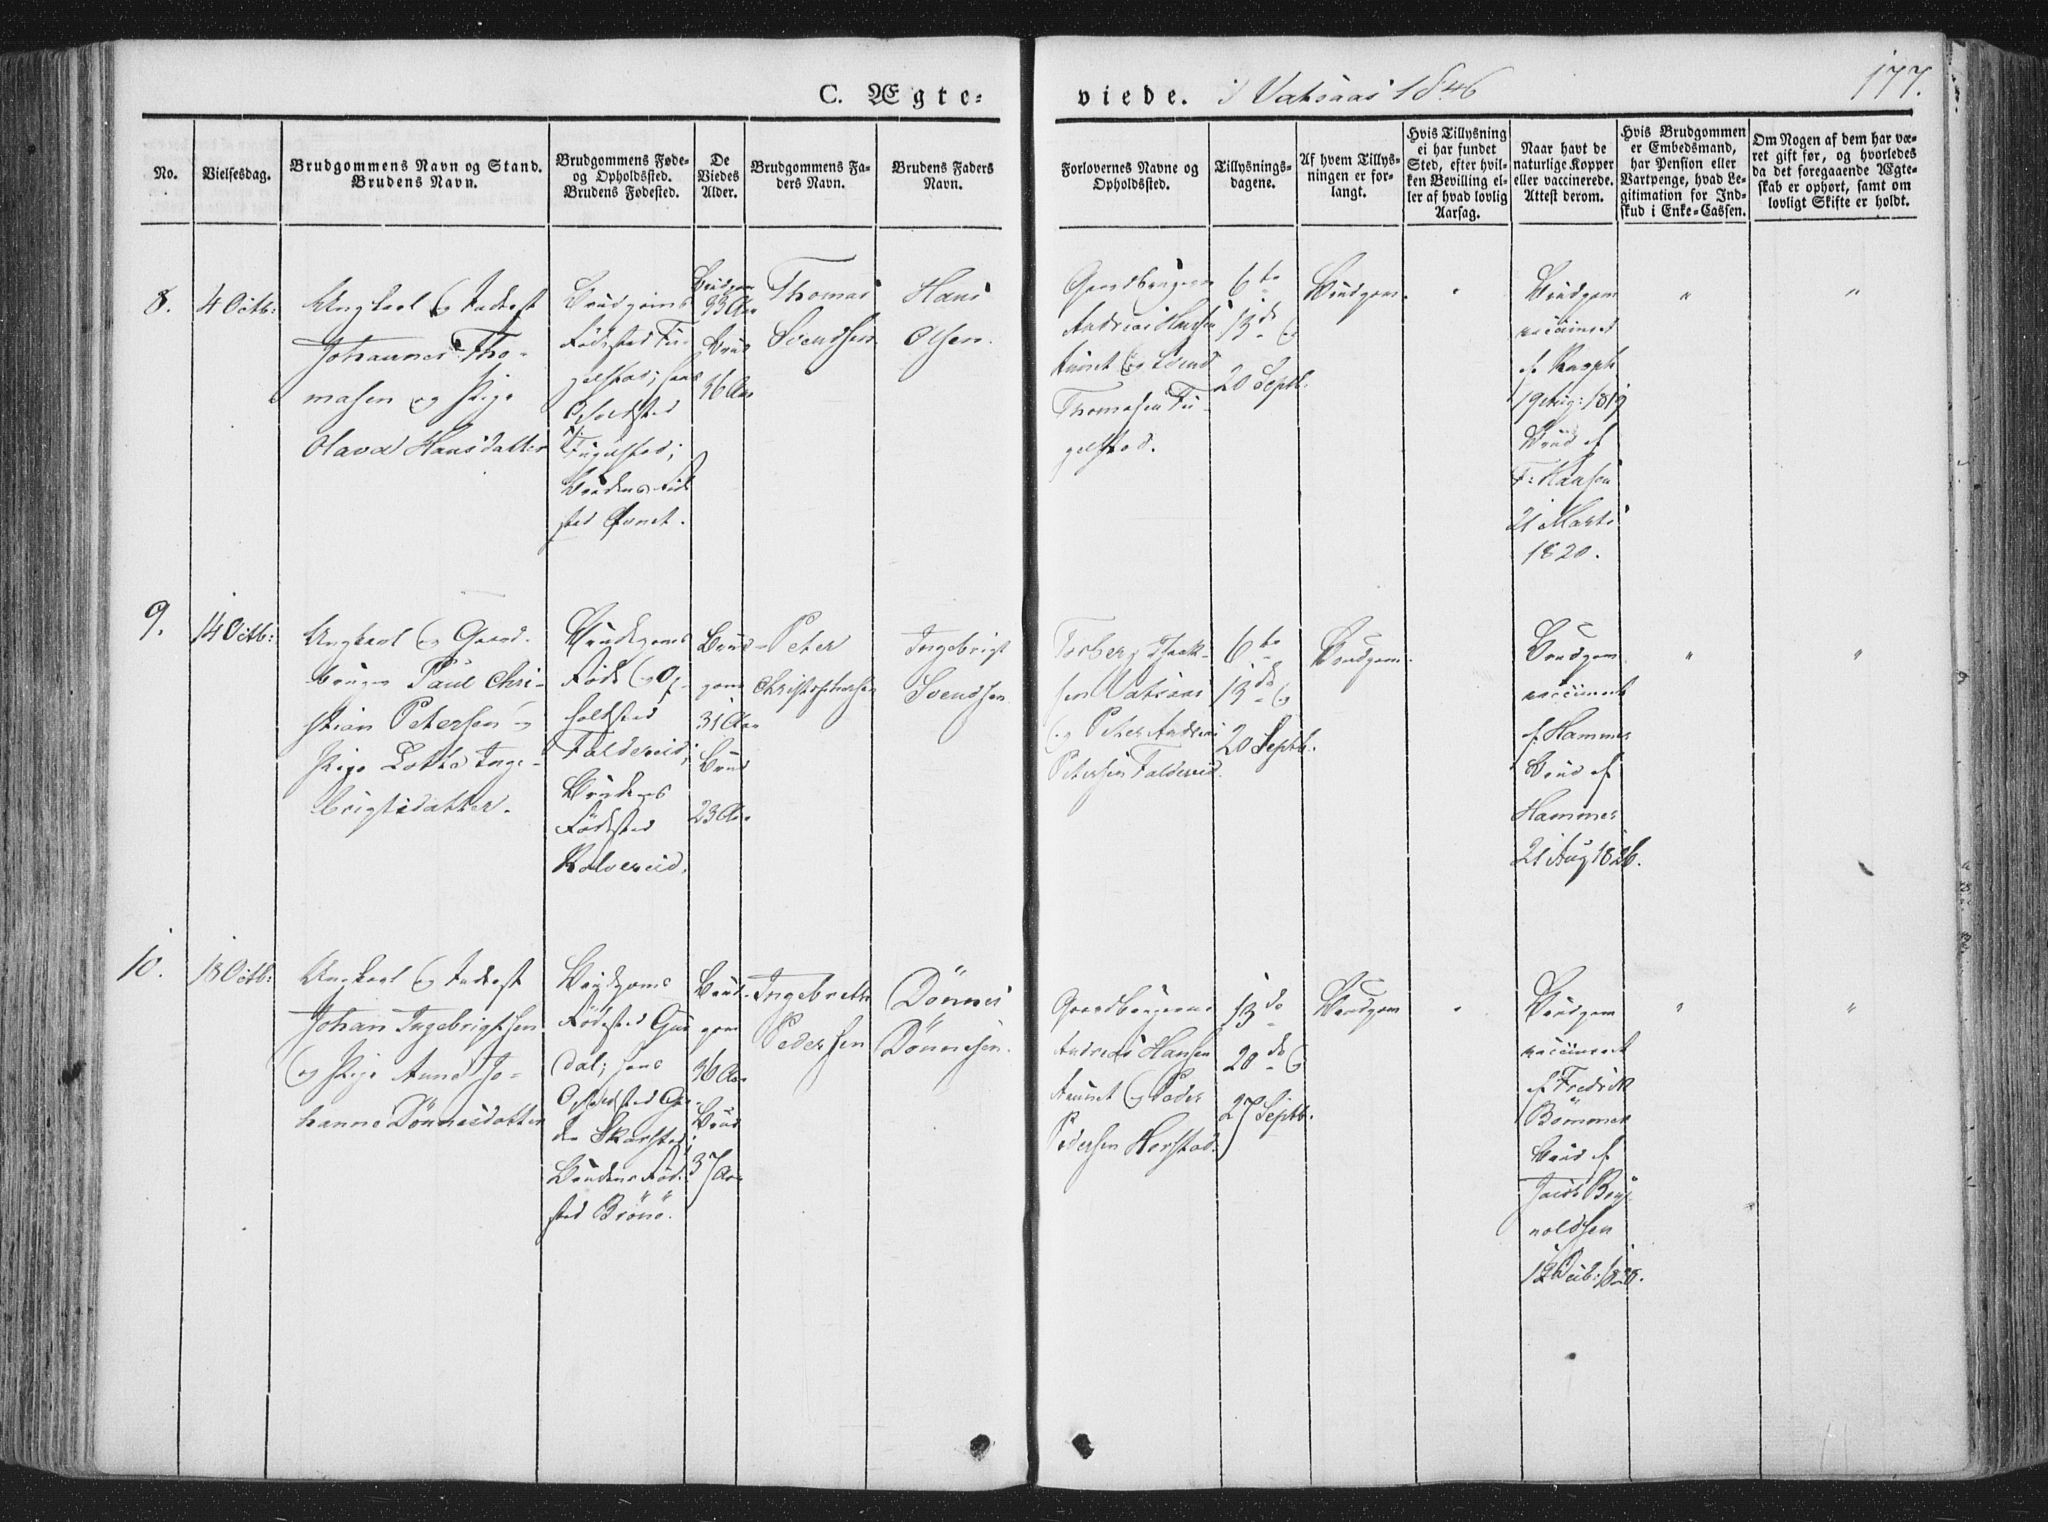 C. Ægteviede. i Vatsaas 1846
177.
No.
Vielsesdag.
Brudgommens Navn og Stand.
Brudens Navn.
Brudgommens Føde-
og Opholdssted.
Brudens Fødested.
De
Viedes
Alder.
Brudgommens Fa-
ders Navn.
Brudens Faders
Navn.
Forlovernes Navne og
Opholdssted.
Tillysnings-
dagene.
Af hvem Tillys-
ningen er for-
langt.
Hvis Tillysning
ei har fundet
Sted, efter hvil-
ken Bevilling el-
ler af hvad lovlig
Aarsag.
Naar havt de
naturlige Kopper
eller vaccinerede.
Attest derom.
Hvis Brudgommen
er Embedsmand,
har Pension eller
Vartpenge, hvad Le-
gitimation for Ind-
skud i Enke-Cassen.
Om Nogen af dem har væ-
ret gift før, og hvorledes
da det foregaaende Ægte-
skab er ophørt, samt om
lovligt Skifte er holdt.
8.
4 Octb:
Ungkarl og Inderst
Johannes Tho-
masen og Pige
Olava Hansdatter
Brudgoms
Fødested
hans
Opholdsted
Brudens Føde
sted
Brudgom
Aar
Brud
Aar
Thomas
Svendsen
Hans
Olsen.
Gaardbruger
Andreas Hansen
og Svend
Thomasen
6te
13de og
20 Septb.
Brudgom.
"
Brudgom
vaccineret
af
19 Aug: 1819
Brud af
F: Hansen
21 Marts
1820.
"
"
9.
14 Octb:
Ungkarl og Gaard-
bruger Paul Chri-
stian Petersen og
Pige Lotta Inge-
brigtsdatter.
Brudgoms
Føde og Op-
holdsted
Foldereid;
Brudens
Fødested
Kolvereid.
Brud-
gom
31 Aar
Brud
23 Aar
Peter
Christophersen
Ingebrigt
Svendsen
Torberg Isack-
sen Vatsaas
og Peter Andreas
Petersen Foldereid.
6te
13de og
20 Septb.
Brudgom.
Brudgom
vaccineret
af Hammer
Brud af
Hammer
21 Aug 1826.
"
"
10.
18 Octb:
Ungkarl og Inderst
Johan Ingebrigtsen
og Pige Anne Jo-
hanna Dönnesdatter
Brudgoms
Fødested
dal; hans
Opholdsted
Brudens Føde-
sted Brönö.
Brud-
gom
36 Aar
Brud
37 Aar
Ingebreth
Pedersen
Dönnes
Dönnesen.
Gaardbrugerne
Andreas Hansen
og Peder
Pedersen Horstad.
13de
20de og
27 Septb.
Brudgom
"
Brudgom
vaccineret
af Fredrik
Bömmer
Brud af
"
"